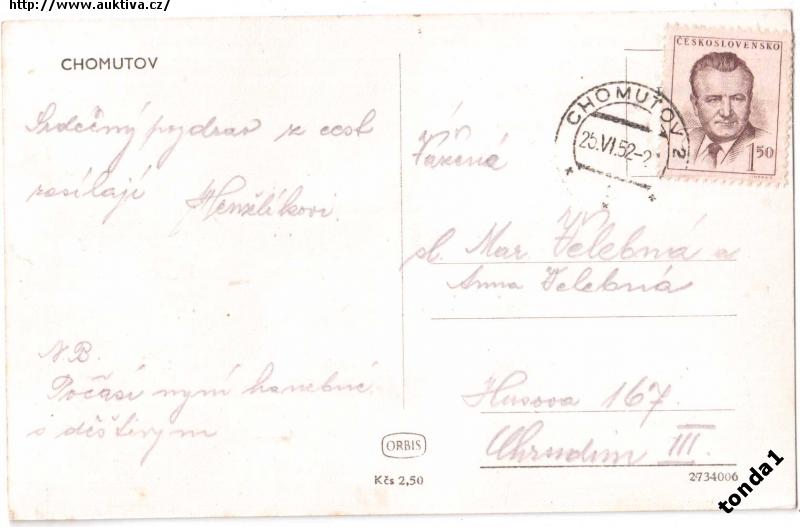 http://www.auktiva.cz/
CHOMUTOV
Srdečný pozdrav z cest
zasílají Henzlíkovi.
N.B.
Počasí nyní hanebné
s deštivým
ČESKOSLOVENSKO
1 50
CHOMUTOV 2
25.VI.52-2
Vážená
sl. Mar. Velebná a
Anna Velebná
Husova 167
Chrudim III.
ORBIS
Kčs 2,50
2-734006
tonda1